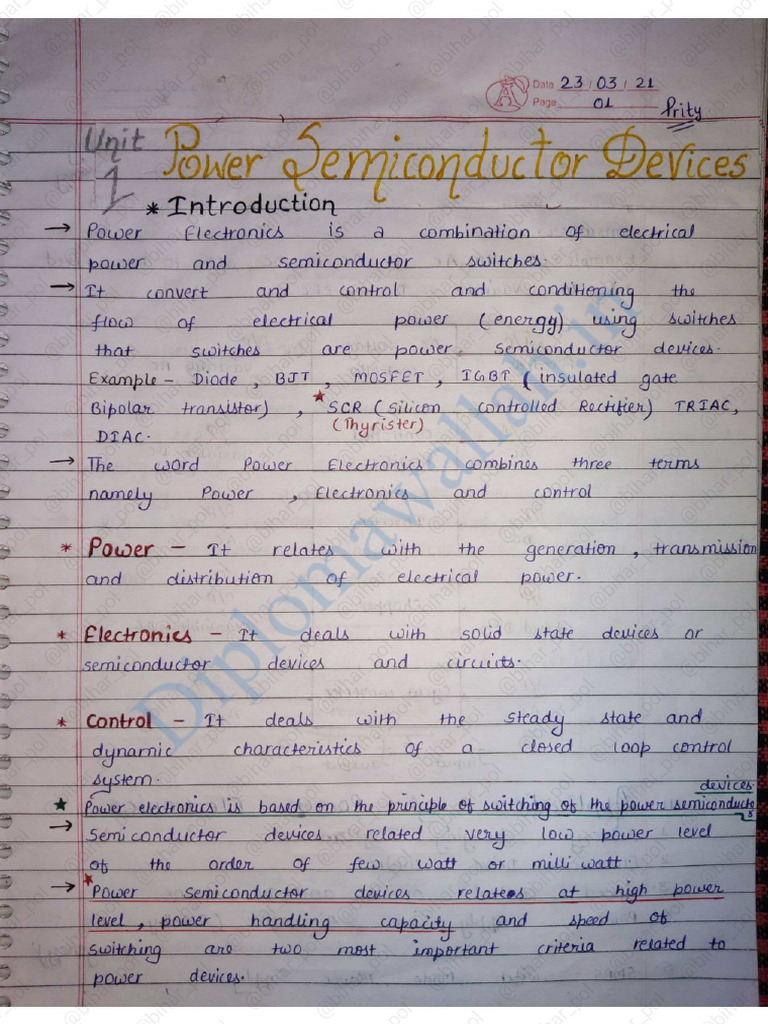 Date 23/03/21
Page 01
Prity
Unit 1
Power Semiconductor Devices
* Introduction
→ Power Electronics is a combination of electrical
power and semiconductor switches.
→ It convert and control and conditioning the
flow of electrical power (energy) using switches
that switches are power semiconductor devices.
Example - Diode, BJT, MOSFET, IGBT (insulated gate
Bipolar transistor), ★ SCR (Silicon Controlled Rectifier) TRIAC,
(Thyrister)
DIAC.
→ The word Power Electronics combines three terms
namely Power, Electronics and control
* Power - It relates with the generation, transmission
and distribution of electrical power.
* Electronics - It deals with solid state devices or
semiconductor devices and circuits.
* Control - It deals with the steady state and
dynamic characteristics of a closed loop control
system.
devices.
★ Power electronics is based on the principle of switching of the power semiconductos
→ Semiconductor devices related very low power level
of the order of few watt or milli watt
→ ★ Power Semiconductor devices relates at high power
level, power handling capacity and speed of
switching are two most important criteria related to
power devices.
Diplomawallah.in
@bihar_pol